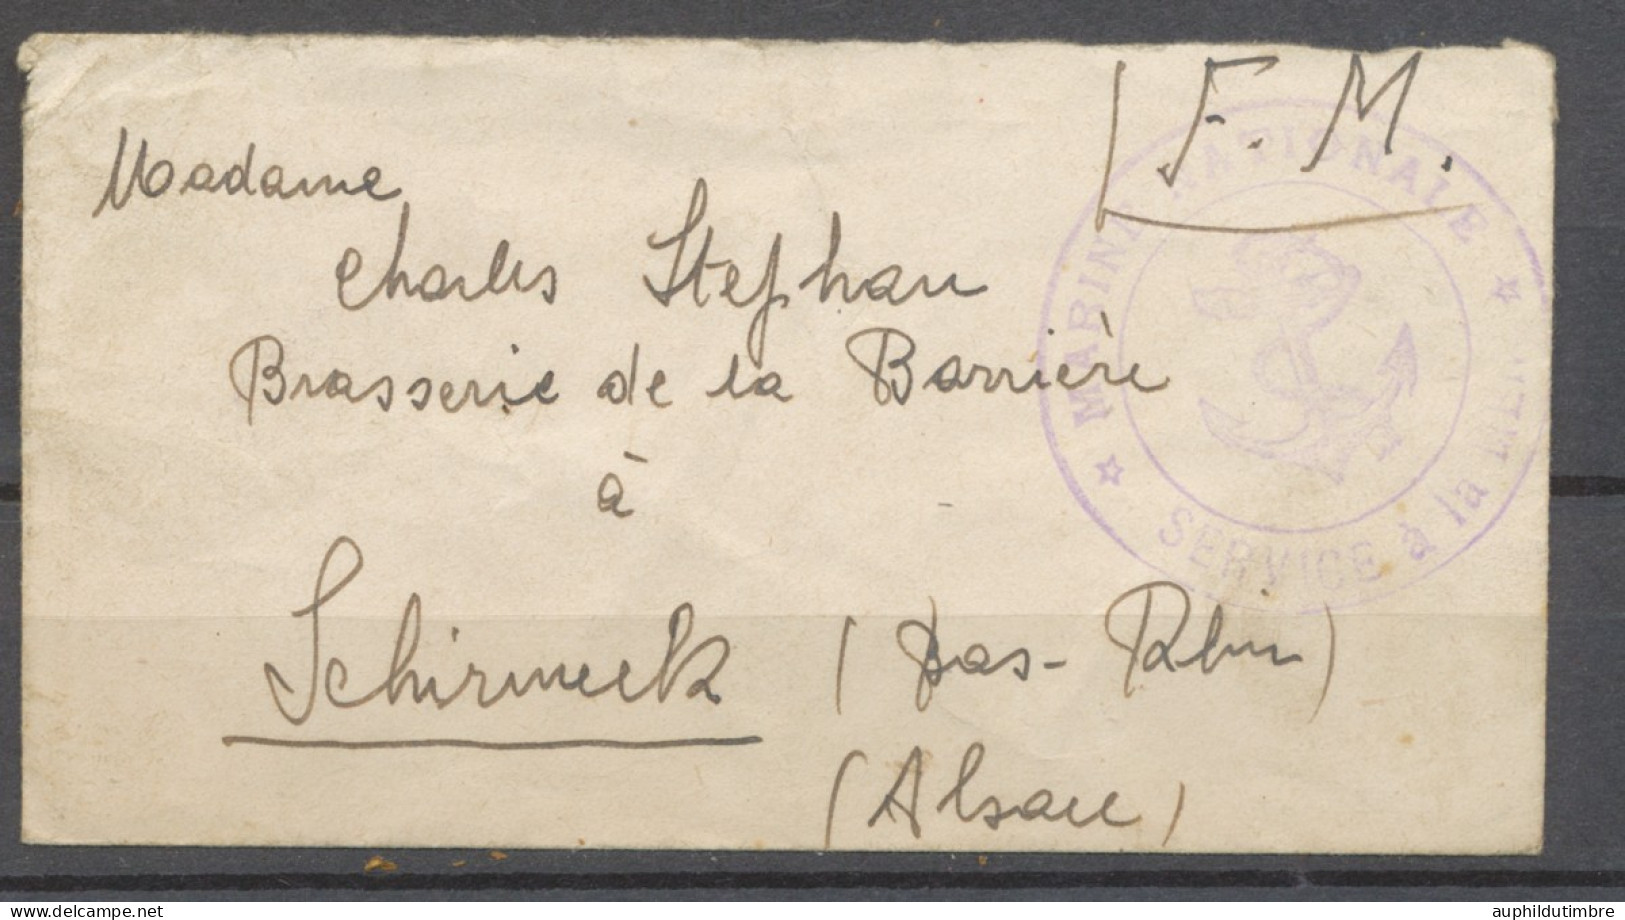 F. M.
Madame
Charles Stephan
Brasserie de la Barrière
à
Schirmeck (Bas-Rhin)
(Alsace)
MARINE NATIONALE
SERVICE à la MER
auphildutimbre